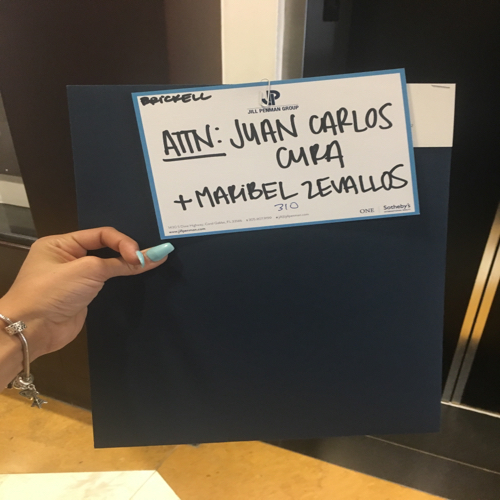 BRICKELL
JP
JILL PENMAN GROUP
ATTN: JUAN CARLOS
CURA
+ MARIBEL ZEVALLOS
310
ONE Sotheby's
www.jillpenman.com